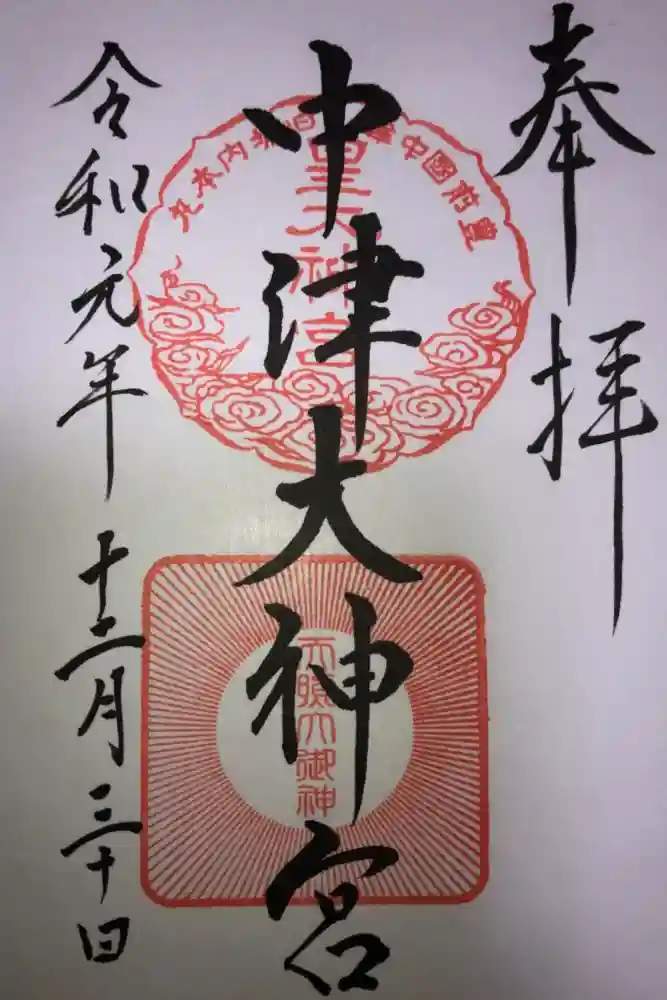 奉拝
中津大神宮
令和元年
十二月三十日
天照大御神